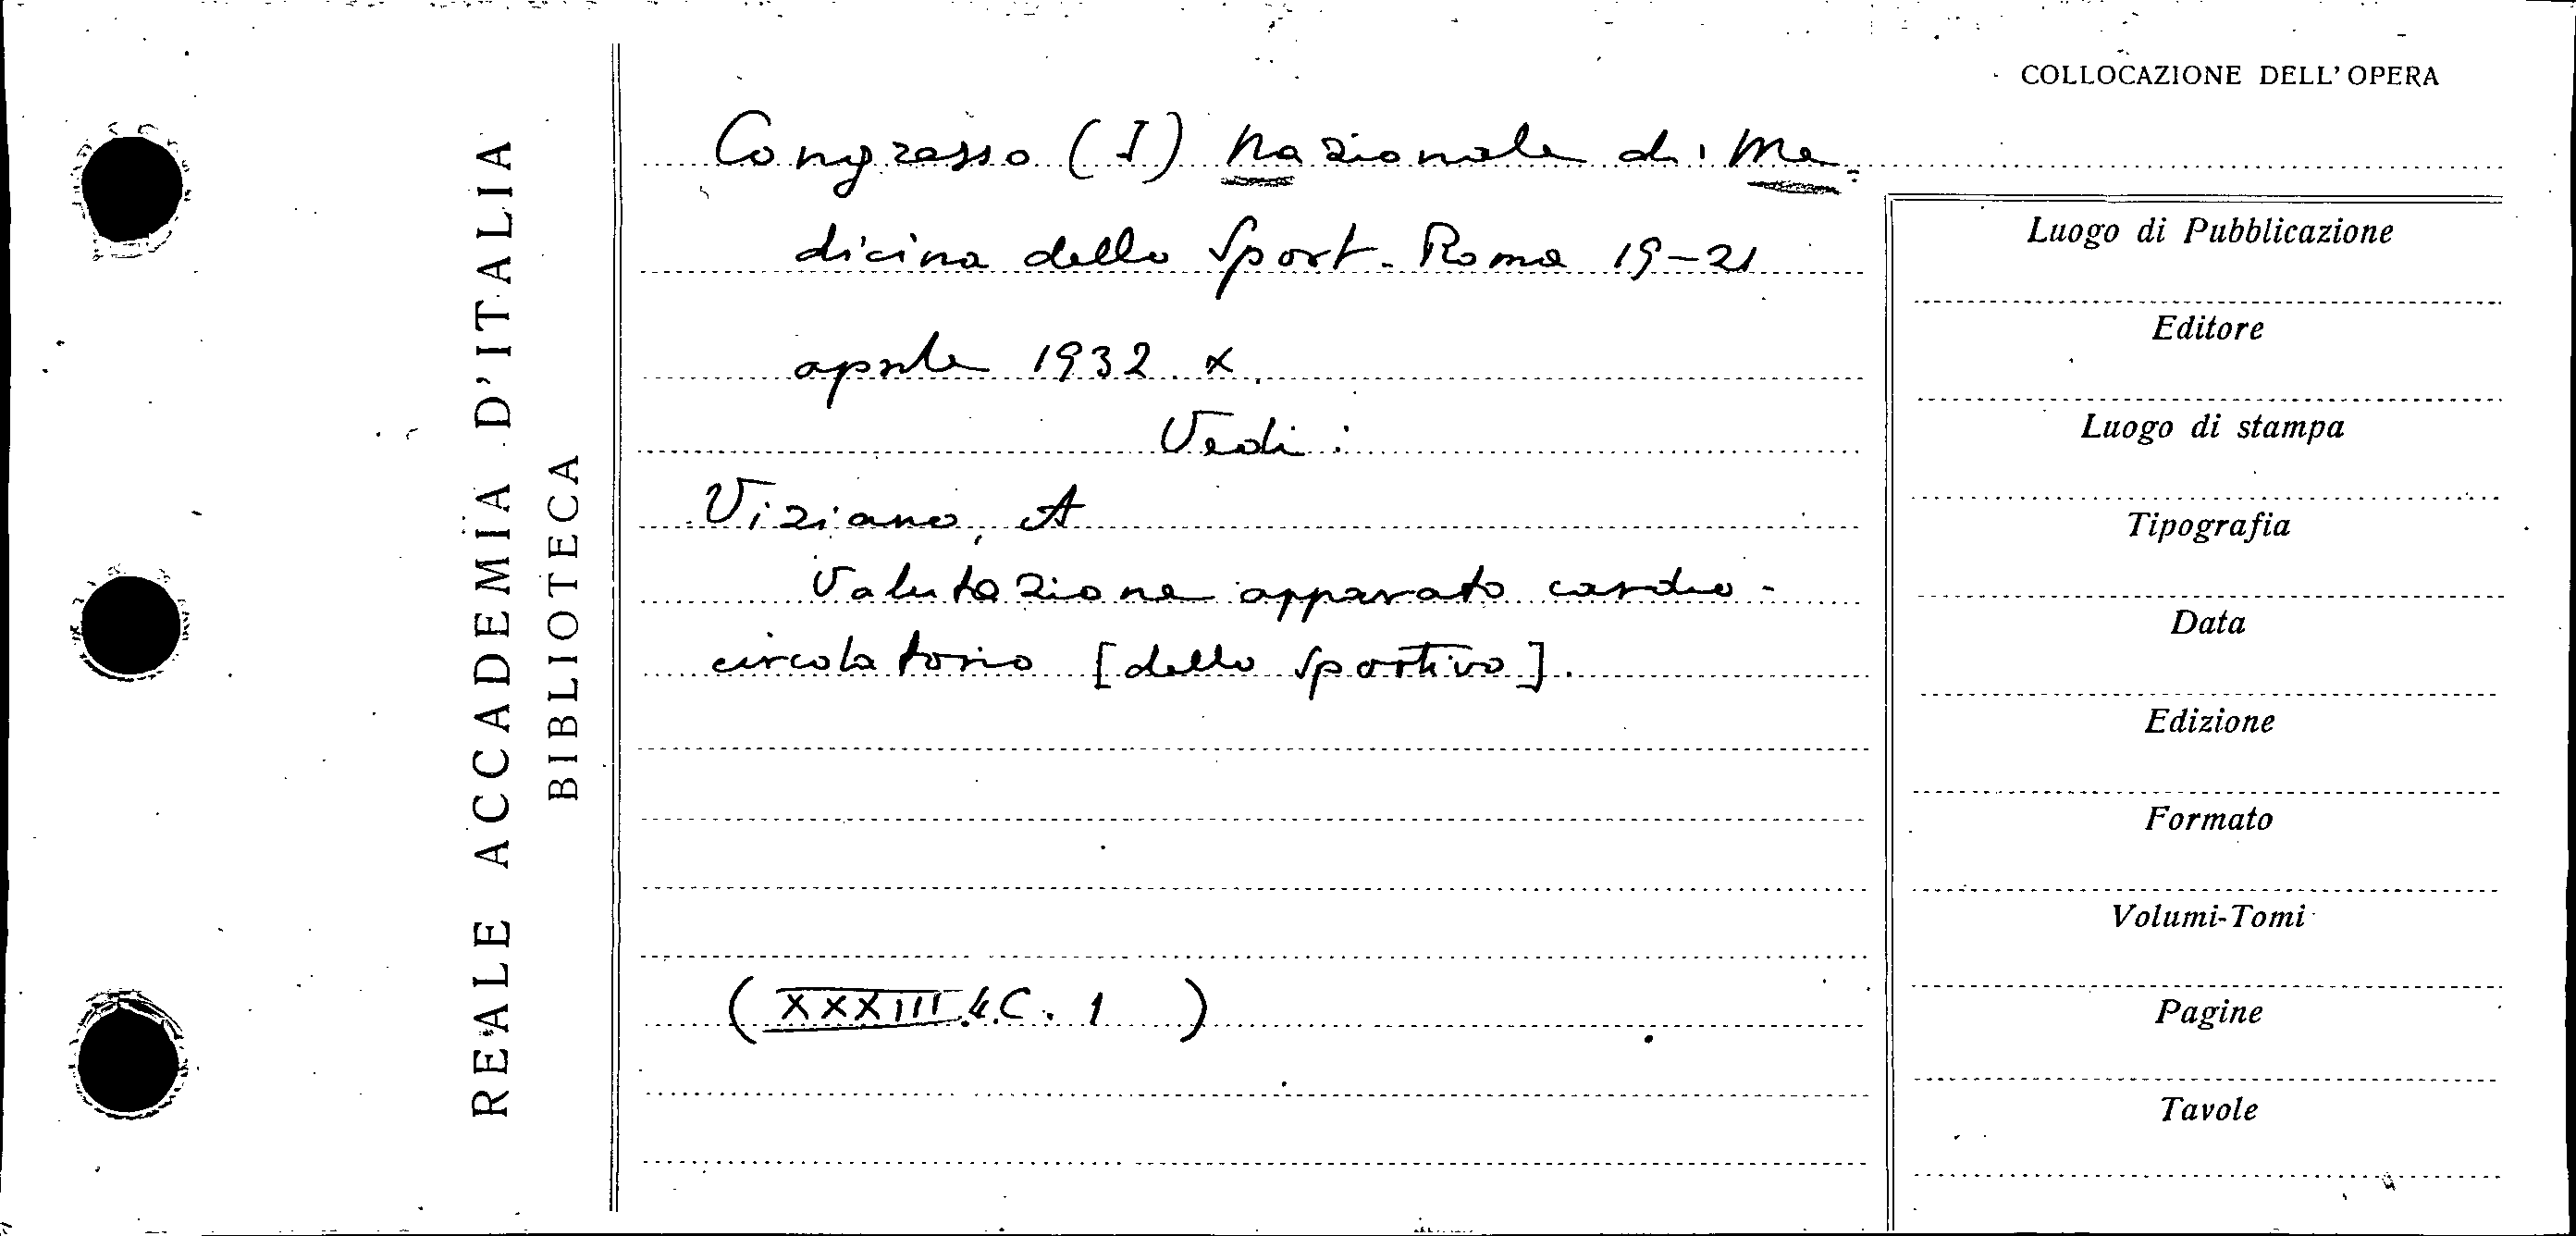 REALE ACCADEMIA D'ITALIA
BIBLIOTECA
COLLOCAZIONE DELL'OPERA
Congresso (I) Nazionale di Me-
dicina dello Sport. Roma 19-21
aprile 1932 X.
Vedi:
Viziano, A
Valutazione apparato cardio-
circolatorio [dello sportivo].
(XXXIII.4.C.1)
Luogo di Pubblicazione
Editore
Luogo di stampa
Tipografia
Data
Edizione
Formato
Volumi-Tomi
Pagine
Tavole